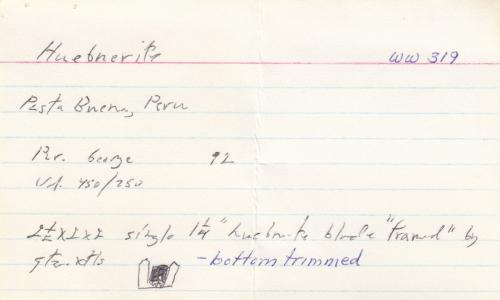 Huebnerite WW 319
Pasta Buena, Peru
Pr. George 92
Vl. 450/250
2½x2x2 single 1¼" huebnerite blade "framed" by
qtz. xtls - bottom trimmed